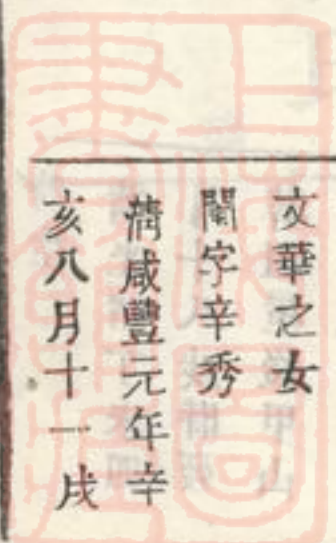 文華之女
閨字辛秀
清咸豐元年辛
亥八月十一戌